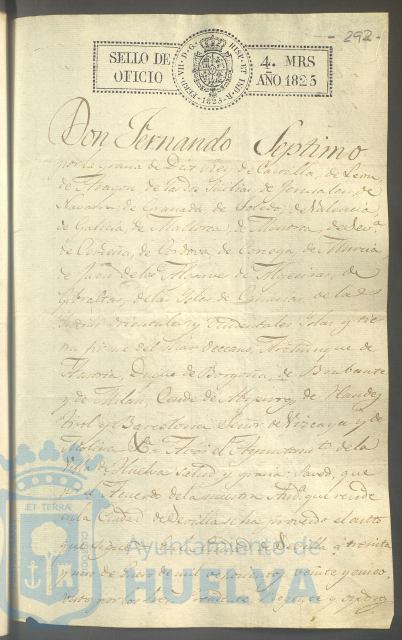 292
SELLO DE OFICIO
FERD. VII. D. G. HISP. ET IND. R. 1825
4. MRS AÑO 1825
Don Fernando Septimo
por la gracia de Dios Rey de Castilla, de Leon,
de Aragon de las dos Sicilias, de Jerusalen, de
Navarra, de Granada, de Toledo, de Valencia,
de Galicia, de Mallorca, de Menorca, de Sev.ª
de Cerdeña, de Cordova, de Corcega, de Murcia,
de Jaen, de los Algarves de Algeciras, de
Gibraltar, de las Yslas de Canarias, de las
Orientales y Occidentales Yslas y tier
ra firme del Mar Occeano, Archiduque de
Austria, Duque de Borgoña, de Brabante
y de Milan, Conde de Abspurg, de Flandes
Tirol y Barcelona Señor de Vizcaya y de
Molina &c. A vos el Ayuntam.to de la
Villa de Huelva salud y gracia: Saved, que
por el Acuerdo de la nuestra Aud.ª que reside
en la Ciudad de Sevilla se ha proveido el auto
que sigue
y uno de Enero de mil ochocientos veinte y cinco,
ET TERRÆ
CUSTODIA
Ayuntamiento de
HUELVA